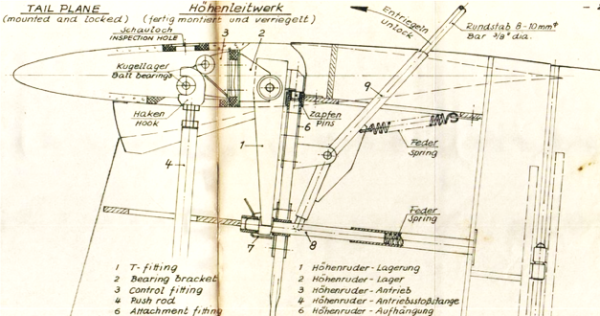 TAIL PLANE
(mounted and locked)
Höhenleitwerk
(fertig montiert und verriegelt)
Entriegeln
unlock
Rundstab 8-10mmφ
Bar 3/8" dia.
Schauloch
INSPECTION HOLE
3
2
Kugellager
Ball bearings
9
Haken
Hook
Zapfen
Pins
6
1
4
Feder
spring
Feder
Spring
7
8
1 T-fitting
2 Bearing bracket
3 Control fitting
4 Push rod
6 Attachment fitting
1 Höhenruder-Lagerung
2 Höhenruder-Lager
3 Höhenruder-Antrieb
4 Höhenruder-Antriebsstoßstange
6 Höhenruder-Aufhängung